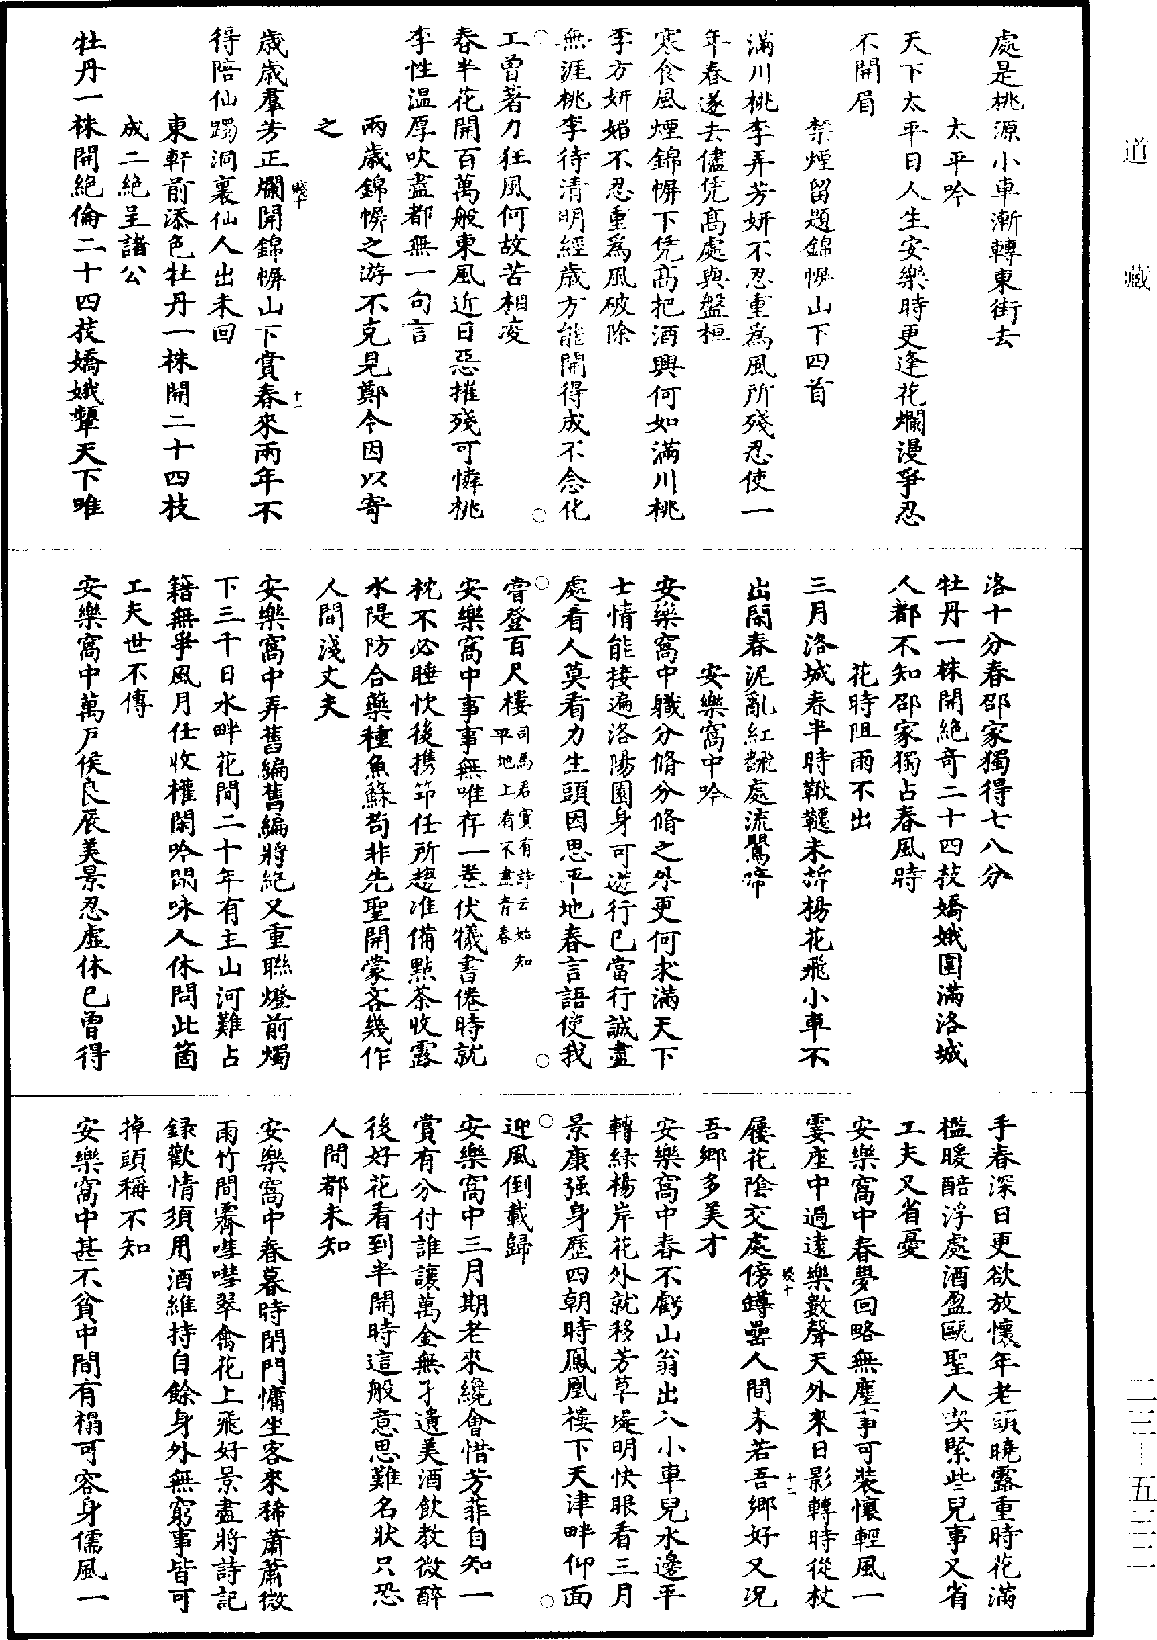 道藏
處是桃源小車漸轉東街去
太平吟
天下太平日人生安樂時更逢花爛漫爭忍
不開眉
禁煙留題錦幈山下四首
滿川桃李弄芳妍不忍重為風所殘忍使一
年春遂去儘凭高處與盤桓
寒食風煙錦幈下凭高把酒興何如滿川桃
李方妍媚不忍重為風破除
無涯桃李待清明經歲方能開得成不念化
工曾著力狂風何故苦相凌
春半花開百萬般東風近日惡摧殘可憐桃
李性溫厚吹盡都無一句言
兩歲錦幈之游不克見鄭令因以寄
之
歲歲羣芳正爛開錦幈山下賞春來兩年不
得陪仙躅洞裏仙人出未回
東軒前添色牡丹一株開二十四枝
成二絕呈諸公
牡丹一株開絕倫二十四枝嬌娥顰天下唯
洛十分春邵家獨得七八分
牡丹一株開絕奇二十四枝嬌娥圍滿洛城
人都不知邵家獨占春風時
花時阻雨不出
三月洛城春半時鞦韆未拆楊花飛小車不
出閑春泥亂紅翻處流鶯啼
安樂窩中吟
安樂窩中職分脩分脩之外更何求滿天下
士情能接遍洛陽園身可遊行已當行誠盡
處看人莫看力生頭因思平地春言語使我
嘗登百尺樓司馬君實有詩云始知平地上有不盡青春
安樂窩中事事無唯存一卷伏犧書倦時就
枕不必睡快後携筇任所趨准備點茶收露
水隄防合藥種魚蘇苟非先聖開蒙吝幾作
人間淺丈夫
安樂窩中弄舊編舊編將絕又重聯燈前燭
下三千日水畔花間二十年有主山河難占
籍無爭風月任收權閑吟閑咏人休問此箇
工夫世不傳
安樂窩中萬戶侯良辰美景忍虛休已曾得
手春深日更欲放懷年老頭曉露重時花滿
檻暖醅浮處酒盈甌聖人喫緊些兒事又省
工夫又省憂
安樂窩中春夢回略無塵事可裝懷輕風一
霎座中過遠樂數聲天外來日影轉時從杖
屨花陰交處傍罇罍人間未若吾鄉好又況
吾鄉多美才
安樂窩中春不虧山翁出入小車兒水邊平
轉綠楊岸花外就移芳草堤明快眼看三月
景康强身歷四朝時鳳凰樓下天津畔仰面
迎風倒載歸
安樂窩中三月期老來纔會惜芳菲自知一
賞有分付誰讓萬金無孑遺美酒飲教微醉
後好花看到半開時這般意思難名狀只恐
人間都未知
安樂窩中春暮時閉門慵坐客來稀蕭蕭微
雨竹間霽嘒嘒翠禽花上飛好景盡將詩記
録歡情須用酒維持自餘身外無窮事皆可
掉頭稱不知
安樂窩中甚不貧中間有榻可容身儒風一
二三—五三二